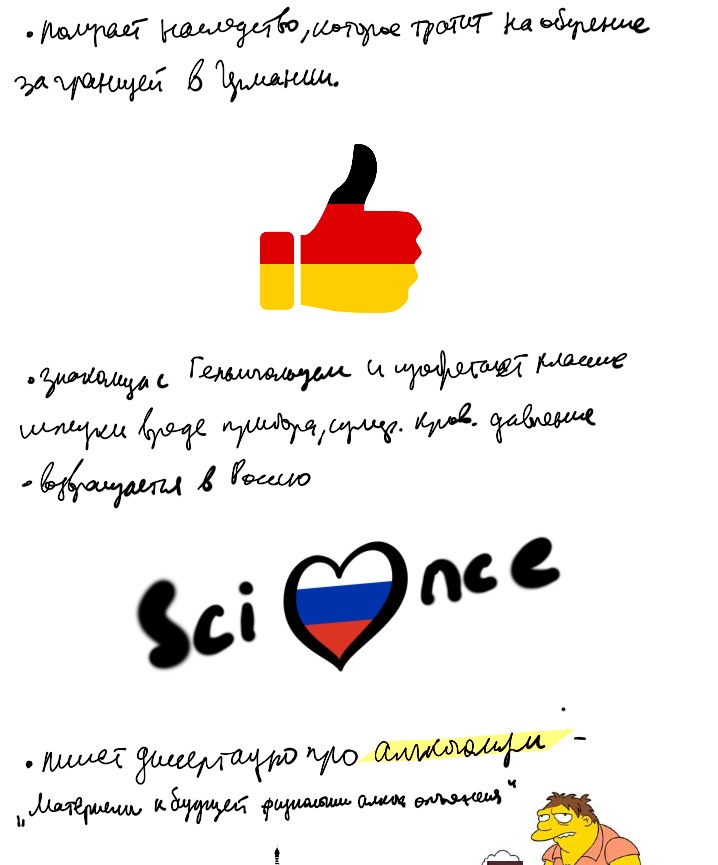 • получает наследство, которое тратит на обучение
за границей в Германии.
• знакомится с Гельмгольцем и изобретает классные
штуки вроде прибора, измер. кров. давление
- возвращается в Россию
Sci nce
• пишет диссертацию про алкоголизм -
"Материалы к будущей физиологии алког. опьянения"